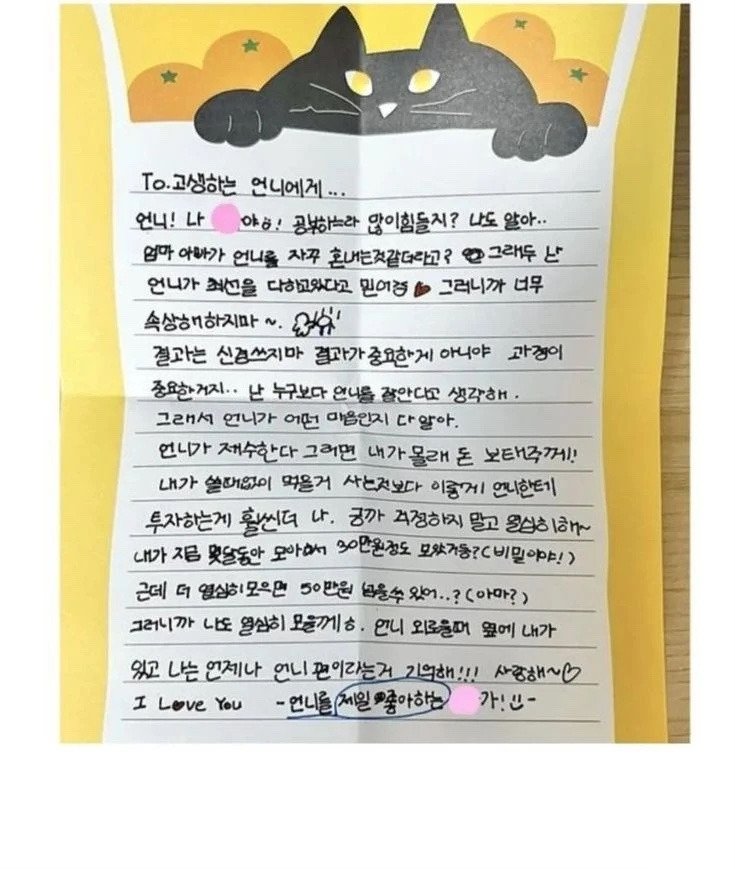 To.고생하는 언니에게...
언니! 나 야ㅎ! 공부하느라 많이힘들지? 나도 알아..
엄마 아빠가 언니를 자꾸 혼내는것같더라고? 그래두 난
언니가 최선을 다하고있다고 믿어정 그러니까 너무
속상해하지마~.
결과는 신경쓰지마 결과가 중요한게 아니야 과정이
중요한거지.. 난 누구보다 언니를 잘안다고 생각해.
그래서 언니가 어떤 마음인지 다 알아.
언니가 재수한다 그러면 내가 몰래 돈 보태주께!!
내가 쓸때없이 먹을거 사는것보다 이렇게 언니한테
투자하는게 훨씬더 나. 긍까 걱정하지 말고 열심히해~
내가 지금 몇달동안 모아서 30만원정도 모았거등?(비밀이야!)
근데 더 열심히모으면 50만원 넘을수 있어..?(아마?)
그러니까 나도 열심히 모을께ㅎ. 언니 외로울때 옆에 내가
있고 나는 언제나 언니 편이라는거 기억해!!! 사랑해~♡
I Love You -언니를 제일 좋아하는 가!-